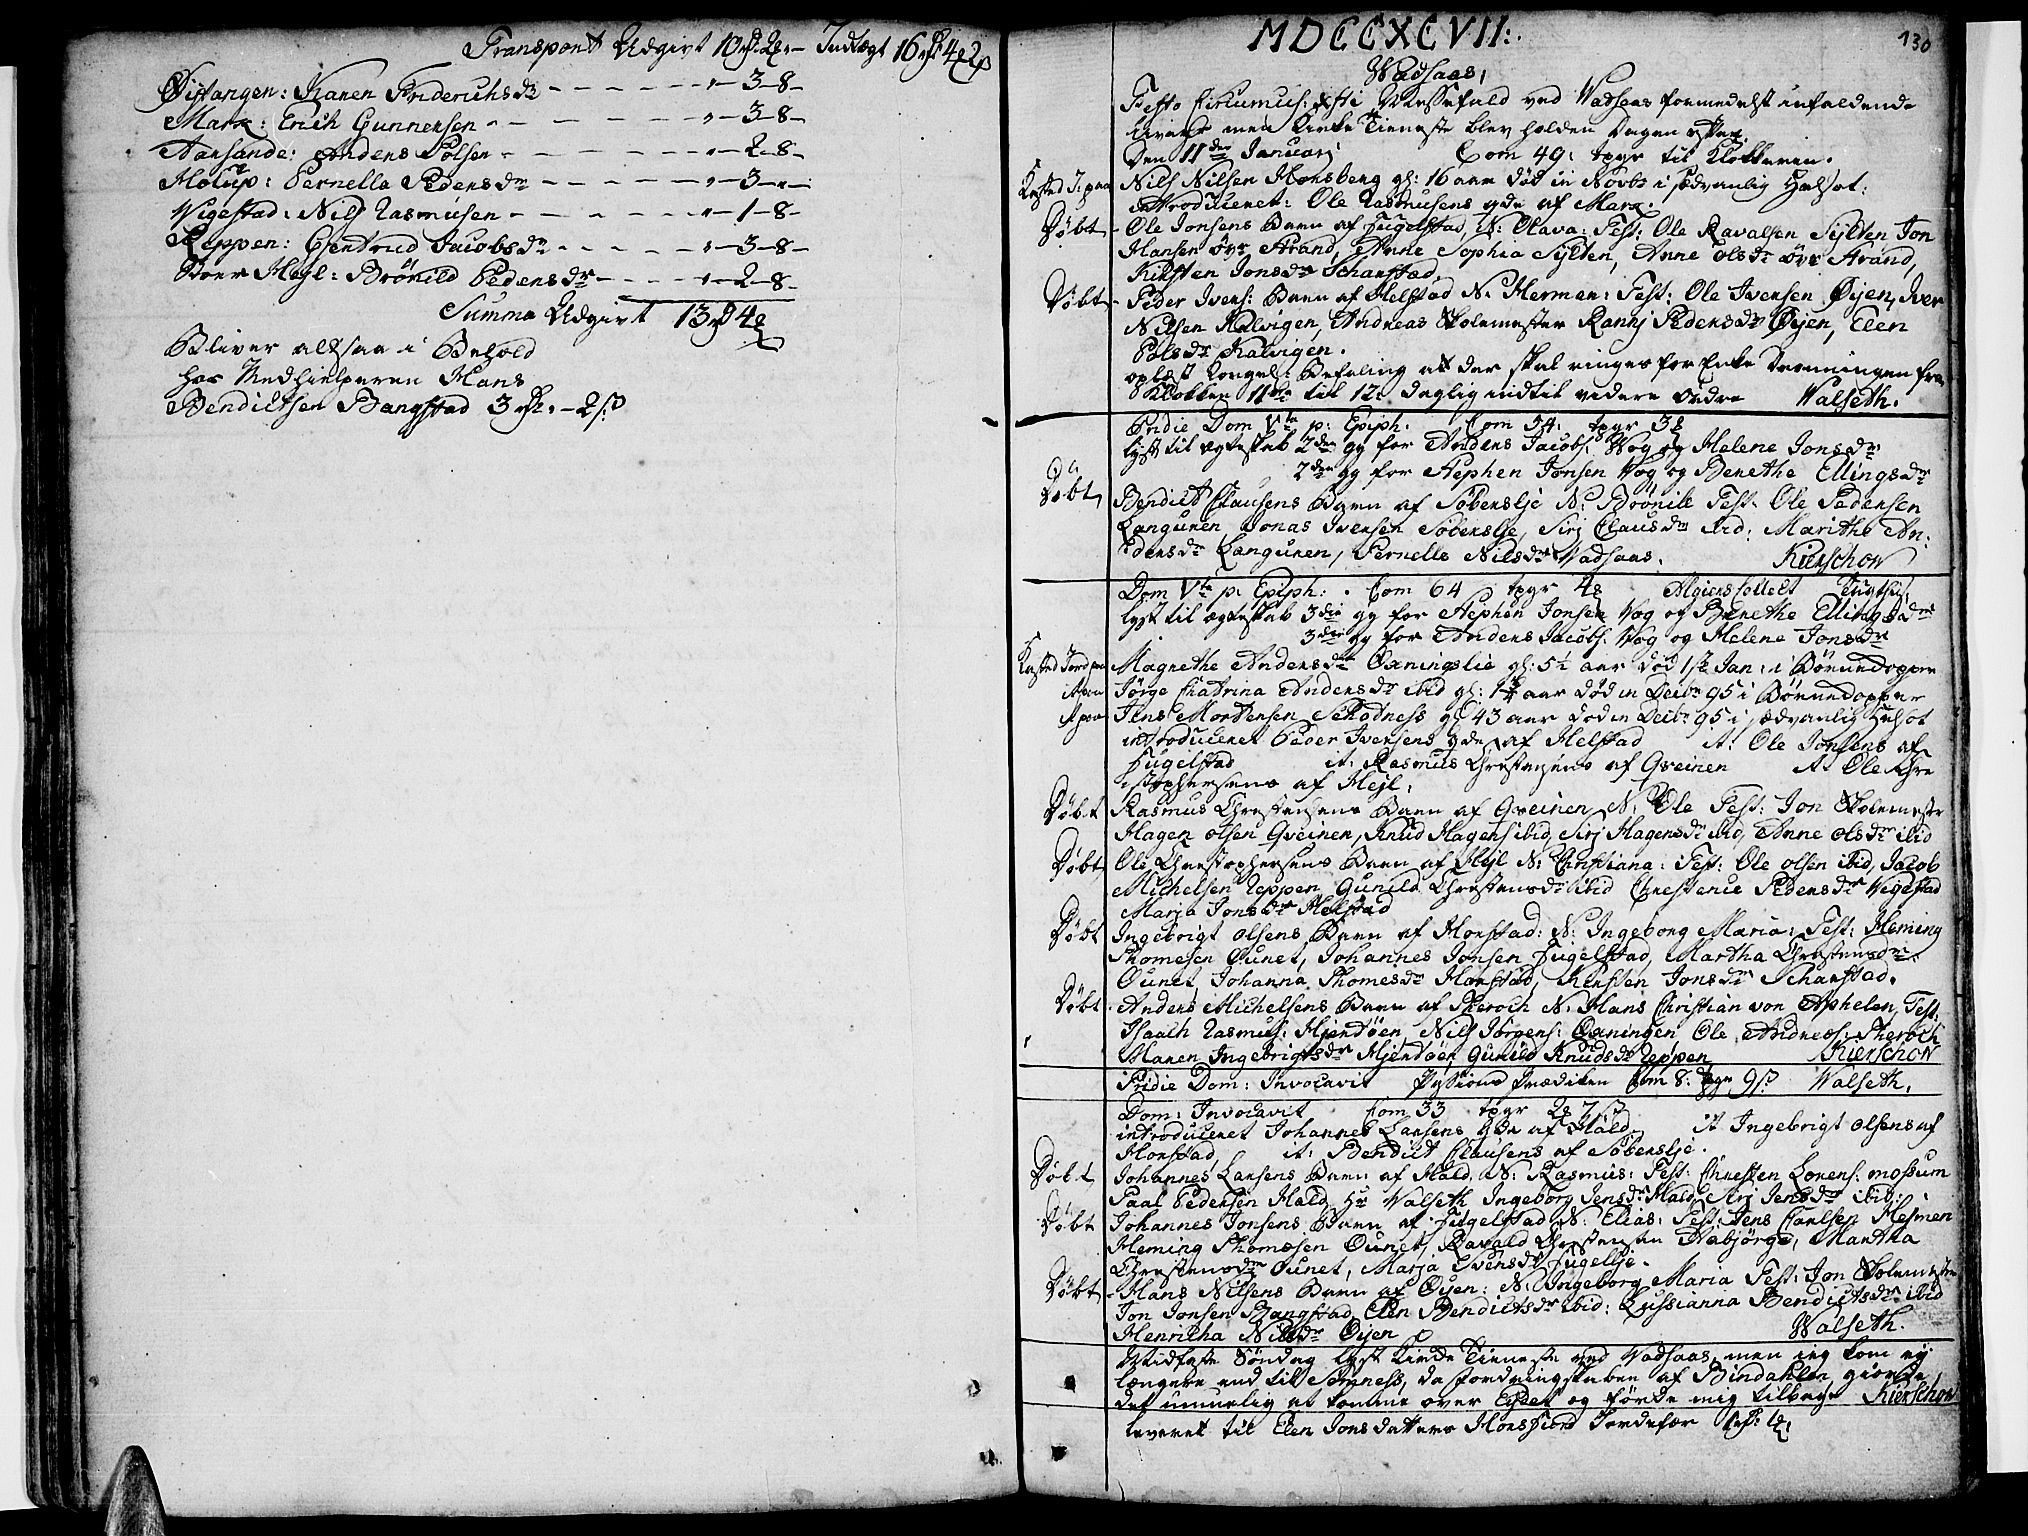 Transport Udgivt 10 rdr. 2 – Indtægt 16 rdr 4 2 ß
Øistangen: Karen Friderichsdr – – – – – – 3 – 8 –
Marx: Erich Gunnersen – – – – – – 3 – 8 –
Aarsande: Anders Polsen – – – – – 2 – 8 –
Holup: Pernella Pedersdr – – – – – 3 – –
Wigestad: Nils Rasmusen – – – – – 1 – 8 –
Reppen: Giertrud Jacobsdr – – – – 3 – 8 –
Hejl: Brønild Pedersdr – – – – 2 – 8 –
Summa Udgivt 13 rd 4
Bliver altsaa i Behold
hos Medhielperen Hans
Bendictsen Bangstad 3 rdr. – 2 ß
MDCCXCVII:
130
Wadsaas,
Festo Circumcis: Xsti Messefald ved Wadsaas formedelst indfaldende
men Kirke Tieneste blev holden Dagen efter
Den 11de Januarj Com 49: til Klokkeren.
Kasted J. paa Nils Nilsen Horsberg gl: 16 aar død in Novbr i sædvanlig Halsot:
introduceret: Ole Rasmusens qde af Marx.
Døbt Ole Jonsens Barn af Fugelstad, N: Olava: Test: Ole Ravalsen Sylten Jon
Hansen övr Strand, Anne Sophia Sylten, Anne olsdr övr Strand,
Kirsten Jonsdr Scharstad,
Døbt Peder Ivers: Barn af Helstad N. Herman: Test: Ole Iversen Øyen, Iver
Nilsen Kalvigen, Andreas Skolemester Ranni Pedersdr Øyen, Elen
Polsdr Kalvigen.
oplæst Kongel: Befaling at der skal ringes for Enke Dronningen fra
Klokken 11 til 12 daglig indtil videre Ordre Walseth.
Pridie Dom Vte p: Epiph. Com 34. tpgr 3
lyst til ægteskab 2den gg for Anders Jacobs: Wog og Helene Jonsdr
2den gg for Stephen Jonsen Wog og Berethe Ellingsdr
Døbt Bendict Clausens Barn af Søberslje N: Brønile Test: Ole Pedersen
Langunen Jonas Iversen Søberslje, Sirj Clausdr ibid: Marithe An:
dersdr Langunen, Pernelle Nilsdr Wadsaas. Kierschow
Dom Vte p: Epiph: Com 64 tpgr 4
lyst til ægteskab 3die gg for Stephen Jonsen Wog og Berethe Ellingsdr
3die gg for Anders Jacobs: Wog og Helene Jonsdr
Kasted Jord paa Magrethe Andersdr Oxningslie gl: 5½ aar død Jan: i Børnekopper
it paa Jørge Catrina Andersdr ibid gl: aar død in Decbr 95 i Børnekopper
it paa Jens Mortensen Schodness gl 43 aar død in Decbr 95 i sædvanlig Halsot
introduceret Peder Iversens qde af Helstad it: Ole Jonsens af
Fugelstad it: Rasmus Chrestensens af Greinen it Ole Chre
stophersens af Hejl,
Døbt Rasmus Chrestensens Barn af Greinen N: Ole Test: Jon Skolemester
Hagen olsen Greinen, Knud Hagens ibid, Sirj Hagensdr ibid, Anne olsdr ibid
Døbt Ole Chrestophersens Barn af Hejl N: Christiana: Test: Ole olsen ibid, Jacob
Michelsen Reppen Gunild Chrestensdr ibid Chrestence Pedersdr Wigestad
Marja Jonsdr Helstad
Døbt Ingebrigt olsens Barn af Horstad: N: Ingeborg Maria: Test: Heming
Thomesen Ounet, Johannes Jonsen Fugelstad, Martha Chrestensdr
Ounet, Johanna Thomesdr Horstad, Kirsten Jonsdr Scharstad.
Døbt Anders Michelsens Barn af Skeroch N: Hans Christian von Aphelen, Test:
Isaach Rasmus: Hjertøen, Nils Jørgens: Oxningen Ole Andreæs: Skeroch
Maren Ingebrigtsdr Hjertøen Gunild Knudsdr Reppen Kierschow
Pridie Dom: Invocavit Passions Prædiken Com 8: tpgr 9 ß Walseth,
Dom: Invocavit Com 33 tpgr 2 7 ß
introduceret Johannes Larsens qde af Hald it Ingebrigt olsens af
Horstad it: Bendict Clausens af Søberslje.
Døbt Johannes Larsens Barn af Hald N: Rasmus: Test: Chresten Lorens: mossum
Paal Pedersen Hald, Hr Walseth Ingeborg Jensdr Hald, Sirj Jensdr ibid:
Døbt Johannes Jonsens Barn af Fugelstad N: Elias: Test: Jens Carlsen Hesmen
Heming Thomesen Ounet, Ravald Chrestensen Aabjørge, Martha
Chrestensdr Ounet, Marja Svensdr Fugellje.
Døbt Hans Nilsens Barn af Øyen: N: Ingeborg Maria Test: Jon Skolemester
Jon Jonsen Bangstad Elen Bendictsdr ibid: Lussianna Bendictsdr ibid
Henricha Nilsdr Øyen Walseth.
Midfaste Søndag lyst Kirke Tieneste ved Wadsaas, men jeg kom ej
længere end til Sømness, da skydskaben af Bindahlen giorde
det umuelig at komme over Eidet og førde mig tilbage Kierschow
leveret til Elen Jonsdatters Horsfiord Jordefær